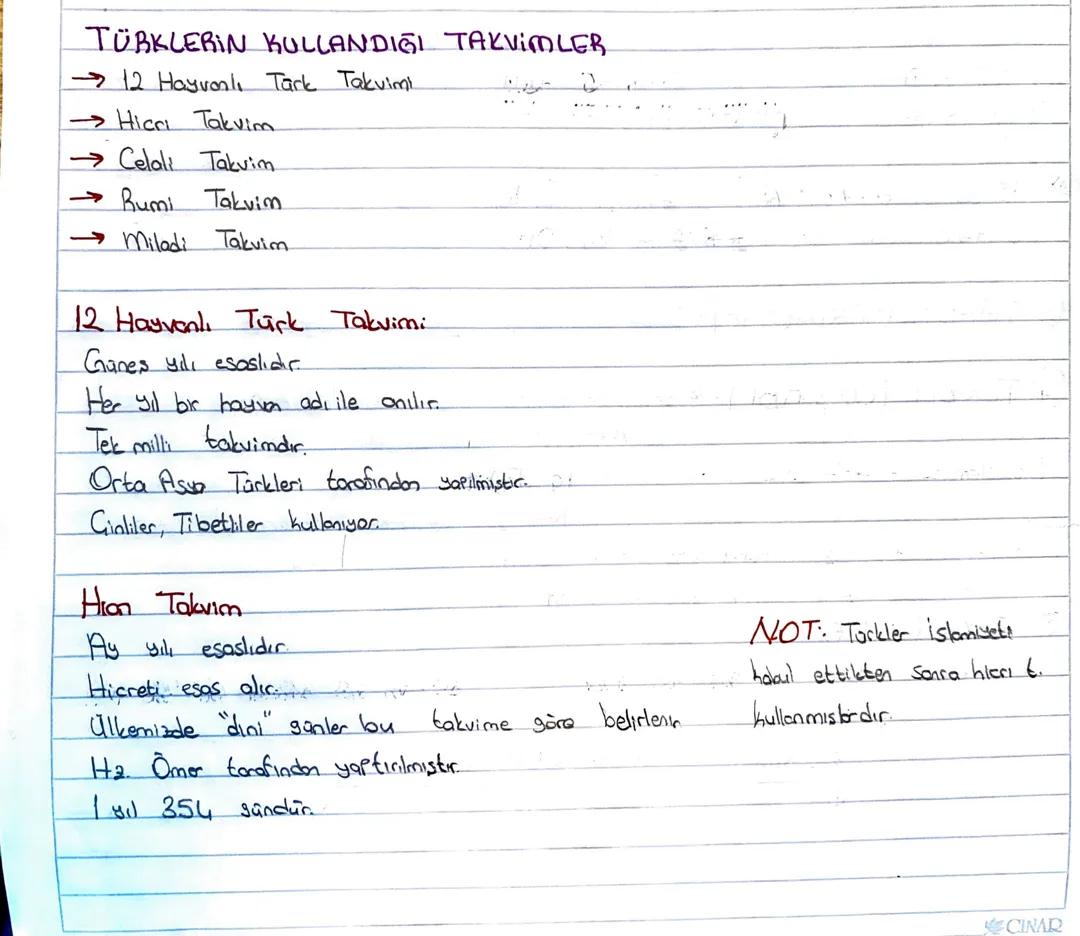 TÜRKLERİN KULLANDIĞI TAKVİMLER
→ 12 Hayvanlı Türk Takvimi
→ Hicri Takvim
→ Celali Takvim
→ Rumi Takvim
→ Miladi Takvim
12 Hayvanlı Türk Takvimi
Güneş yılı esaslıdır.
Her yıl bir hayvan adı ile anılır.
Tek milli takvimdir.
Orta Asya Türkleri tarafından yapılmıştır.
Çinliler, Tibetliler kullanıyor.
Hicri Takvim
Ay yılı esaslıdır.
Hicreti esas alır.
Ülkemizde "dini" günler bu takvime göre belirlenir
Hz. Ömer tarafından yaptırılmıştır.
1 yıl 354 gündür.
NOT: Türkler islamiyeti
kabul ettikten sonra hicri t.
kullanmışlardır.
ÇINAR